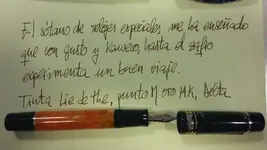 El sótano de relojes especiales me ha enseñado
que con gusto y Kaweco, hasta el zafio
experimenta un buen viaje.
Tinta Lie de Thé, punto M oro 14k, Delta